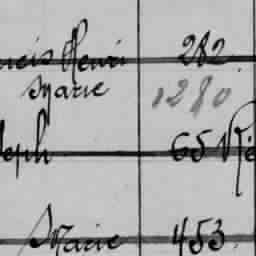 Henri 282
Marie 1280
seph 65
Marie 453